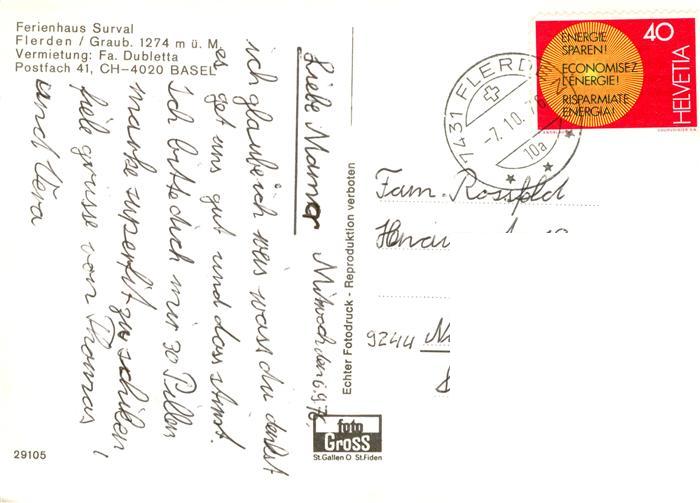 Ferienhaus Surval
Flerden / Graub. 1274 m ü. M.
Vermietung: Fa. Dubletta
Postfach 41, CH-4020 BASEL
Liebe Mama
Mitwoch den 6.9.76,
ich glaube ich weis wass du denkst
es get uns gut und dass stimt.
Ich bitte dich mir 30 Pillen
marke superfit zu schiken
fiele grüsse von Thomas
und Vera
29105
Echter Fotodruck - Reproduktion verboten
foto
Gross
St.Gallen O St.Fiden
7431 FLERDEN
-7.10.76
10a
ENERGIE
SPAREN!
ECONOMISEZ
L'ENERGIE!
RISPARMIATE
ENERGIA!
40
HELVETIA
Fam. Rossfeld
9244